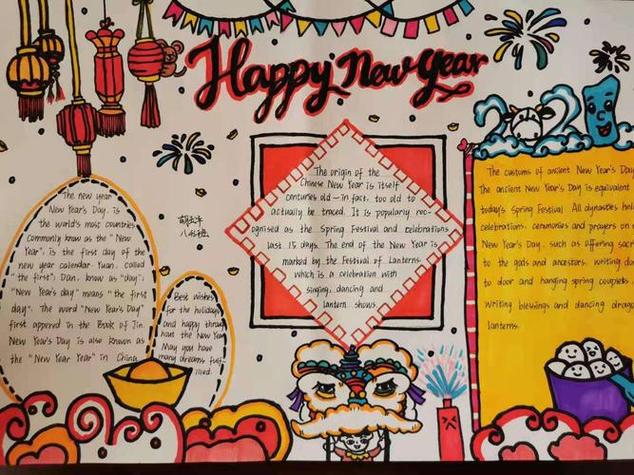 Happy New Year
2021
The new year
New Year's Day, is
the world's most countries
commonly know as the "New
Year", is the first day of the
new year calendar. Yuan, called
"the first"; Dan, know as "day";
"New Year's day" means "the first
day". The word "New Year's Day"
first appered in the Book of Jin
New Year's Day is also known as
the "New Year Year" in China
Best wishes
for the holidays
and happy throug
hout the New Year
May you have
many dreams fulf-
illed.
The origin of the
Chinese New Year is itself
centuries old - in fact, too old to
actually be traced. It is popularly rec-
ognised as the Spring Festival and celebrations
last 15 days. The end of the New Year is
marked by the Festival of Lanterns
which is a celebration with
singing, dancing and
lantern shows.
The customs of ancient New Year's Day
The ancient New Year's Day is equivalent
today's Spring Festival. All dynasties hol
celebrations, ceremonies and prayers on
New Year's Day, such as offering sacr
to the gods and ancestors, writing do
to door and hanging spring couplets
writing blessings and dancing drago
lanterns.